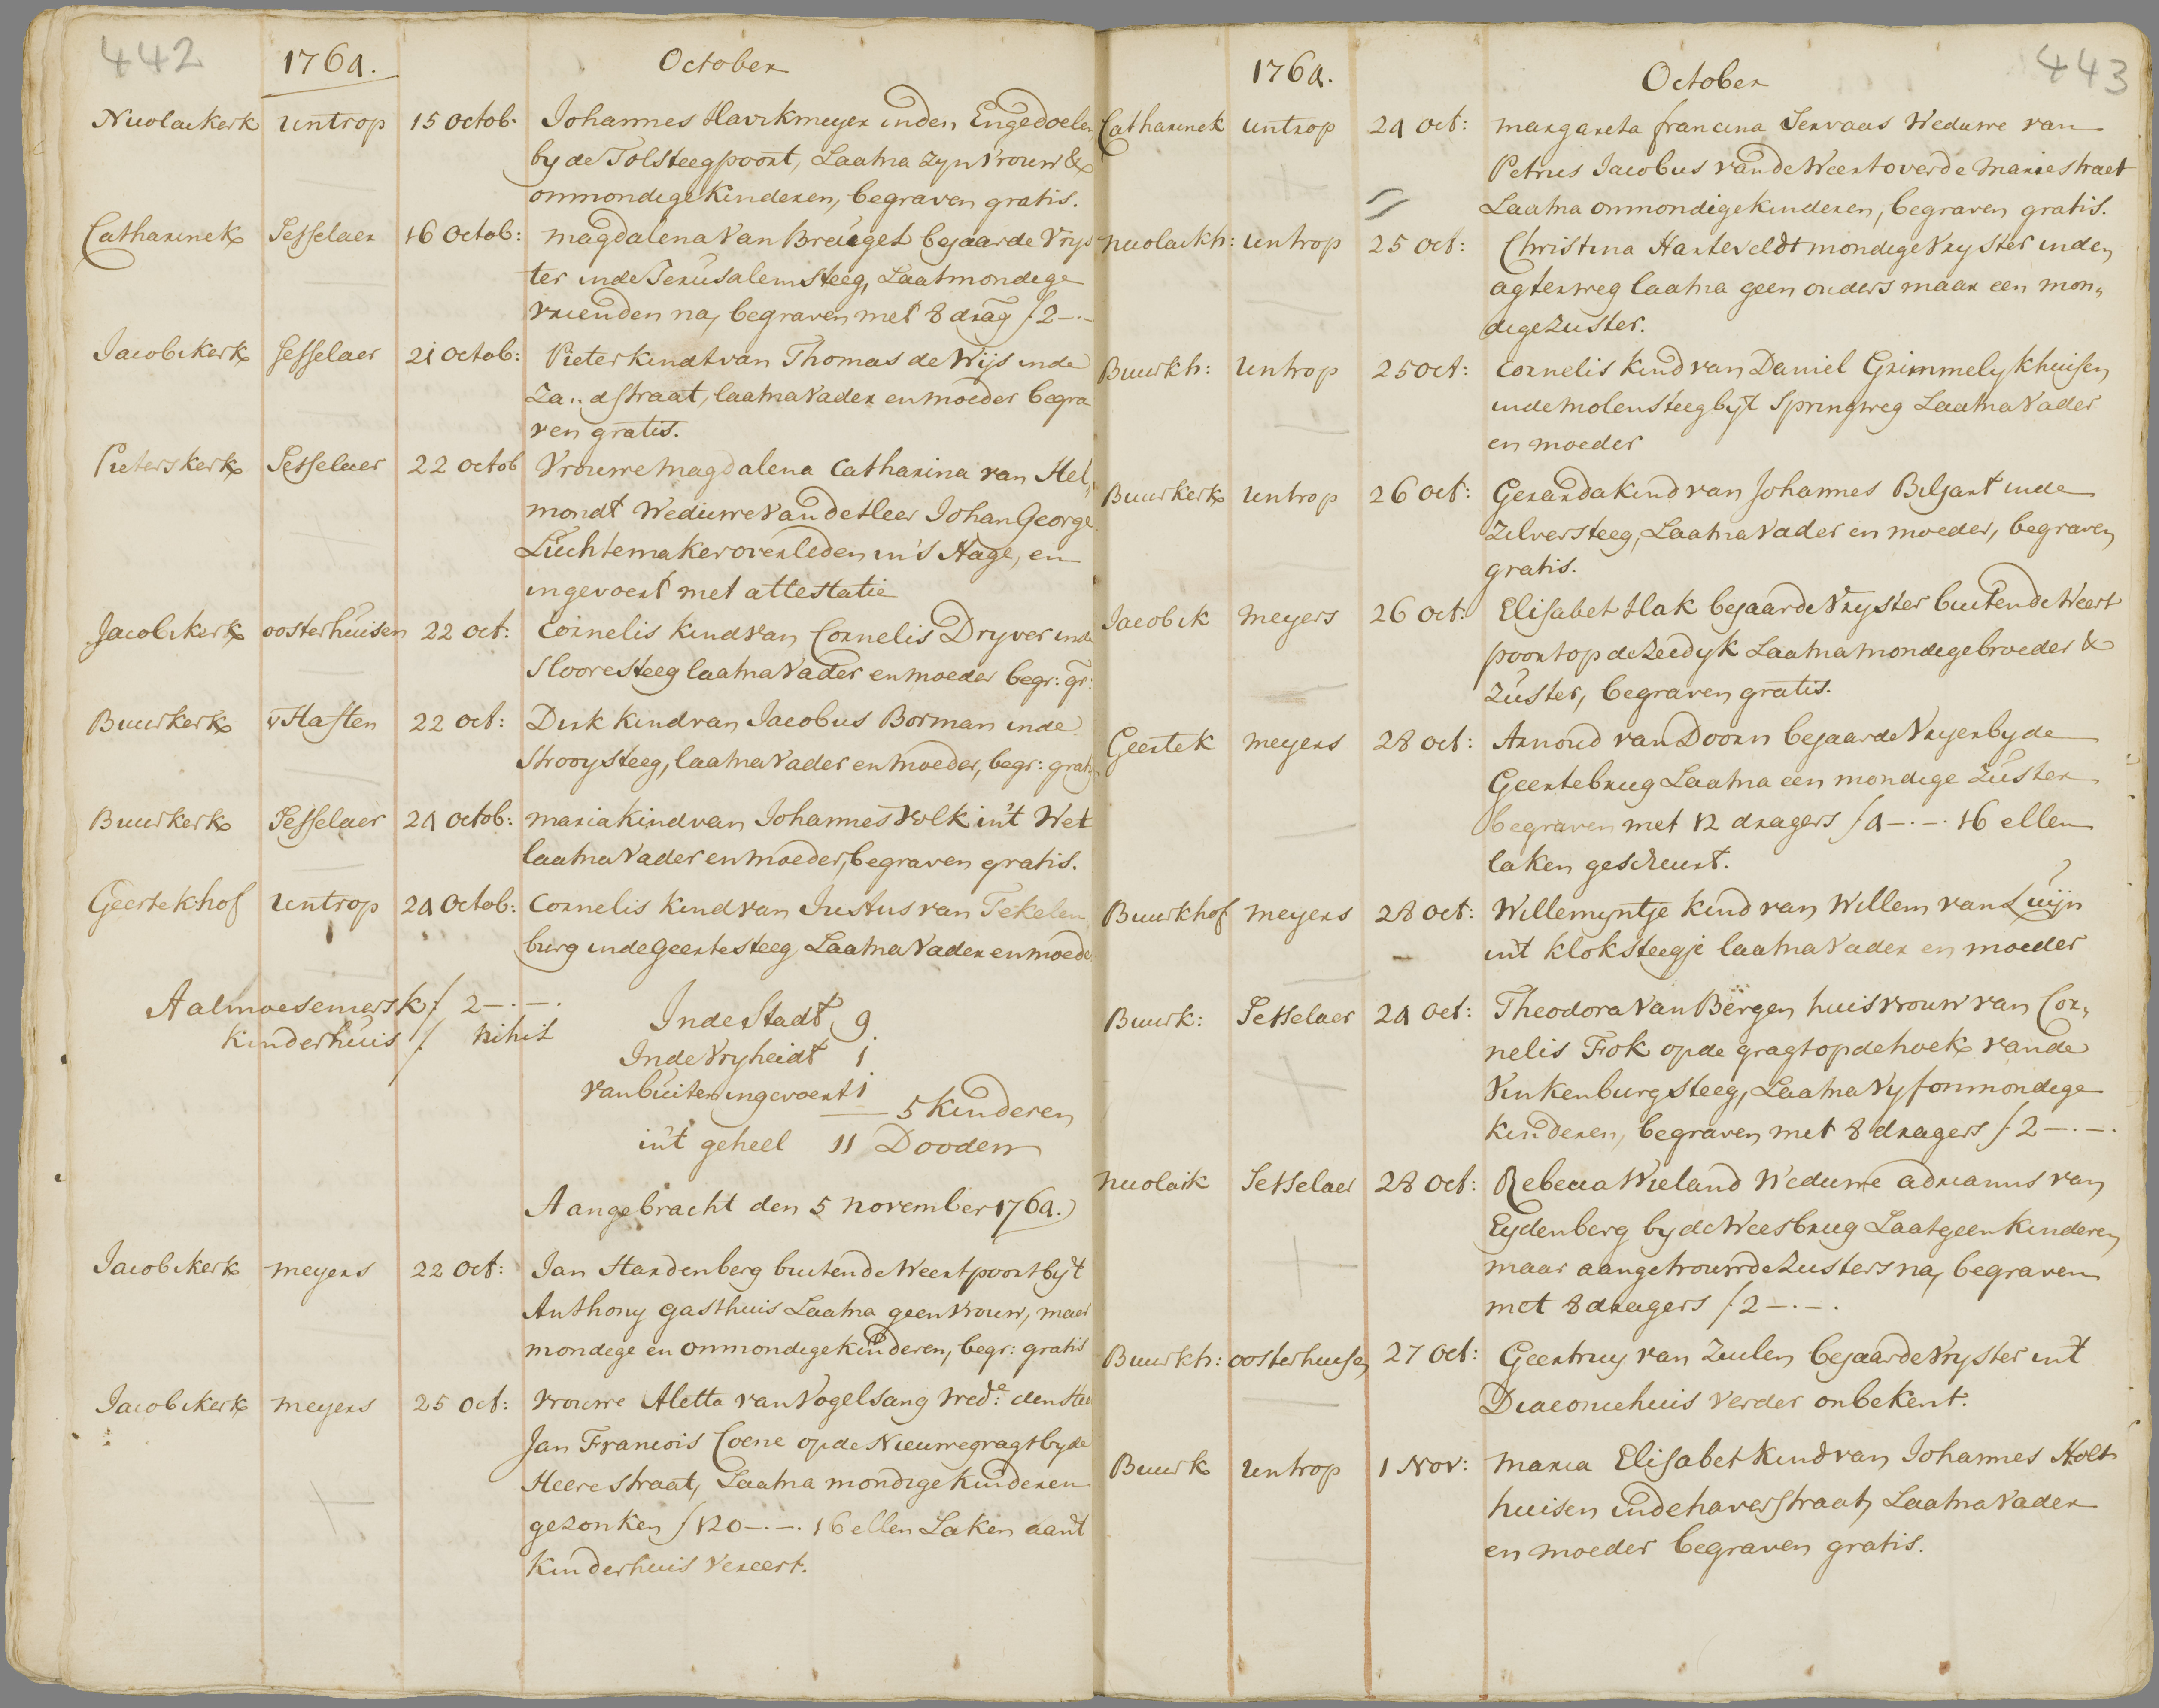 442
1764.
October
Nicolaikerk Untrop 15 octob. Johannes Havikmeyer in den Engedoelen
by de Tolsteegpoort, Laatna zyn vrouw &
onmondige kinderen, begraven gratis.
Catharinek Sesselaer 16 Octob: Magdalena van Breugel bejaarde Vrys
ter inde Jerusalemsteeg, Laat mondige
vrienden na, begraven met 8 drag f 2-.-
Jacobikerk Sesselaer 21 octob: Pieter kindt van Thomas de Wijs inde
Zandstraat, laatna vader en moeder begra
ven gratis.
Pieterskerk Sesselaer 22 octob Vrouwe Magdalena Catharina van Hel,,
mondt Weduwe van de Heer Johan George
Luchtemaker overleden in 's Hage, en
ingevoert met attestatie
Jacobikerk oosterhuisen 22 oct: Cornelis kind van Cornelis Dryver inde
Slooresteeg laatna vader en moeder begr: gr:
Buurkerk v Hasten 22 oct: Dirk kind van Jacobus Borman inde
Strooysteeg, laatna vader en moeder, begr: gratis
Buurkerk Sesselaer 24 octob: maria kind van Johannes Volk in't Wet
laatna vader en moeder, begraven gratis.
Geertekhof Untrop 24 Octob: Cornelis kind van Justus van Tekelen
burg inde Geertesteeg Laatna Vader en moeder
Aalmoeseniersk: f 2-.-.
Kinderhuis f. nihil
Inde Stadt 9
Inde Vryheidt 1
van buiten ingevoert 1
5 kinderen
in't geheel 11 Dooden
Aangebracht den 5 november 1764.
Jacobikerk meyers 22 Oct: Jan Hardenberg buiten de Weertpoort by't
Anthony gasthuis Laatna geen vrouw, maer
mondige en onmondige kinderen, begr: gratis
Jacobikerk meyers 25 oct: vrouwe Aletta van Vogelsang wede: den Heer
Jan Francois Coene op de Nieuwegragt by de
Heerestraat, Laatna mondige kinderen
gezonken f 120-.-. 16 ellen Laken aan't
Kinderhuis vereert.
443
1764.
October
Catharinek Untrop 24 oct: margareta francina Servaas Weduwe van
Petrus Jacobus van de Weert over de Mariestraet
Laatna onmondige kinderen, begraven gratis.
nicolaikh: Untrop 25 oct: Christina Harteveldt mondige Vryster inden
agterweg laatna geen ouders maar een mon,,
dige zuster.
Buurkh: Untrop 25 oct: Cornelis kind van Daniel Grimmelykhuisen
inde molensteeg by't Springweg Laatna Vader
en moeder
Buurkerk Untrop 26 oct: Gerarda kind van Johannes Biljart inde
Zilversteeg, Laatna Vader en moeder, begraven
gratis.
Jacobik meyers 26 oct: Elisabet Hak bejaarde Vryster buiten de Weert
poort op de Zeedyk Laatna mondige broeder &
zuster, begraven gratis.
Geertek meyers 28 oct: Arnoud van Doorn bejaarde Vryer by de
Geertebrug Laatna een mondige zuster
begraven met 12 dragers f 4-.-. 16 ellen
laken gescheurt.
Buurkhof meyers 28 oct: Willemyntje kind van Willem van Luijn
in't kloksteegje laatna vader en moeder
Buurk: Sesselaer 24 Oct: Theodora van Bergen huisvrouw van Cor,,
nelis Fok op de gragt op de hoek vande
Vinkenburgsteeg, Laatna vyf onmondige
kinderen, begraven met 8 dragers f 2-.-.
nicolaik Sesselaer 28 oct: Rebecca Wieland Weduwe Adrianus van
Eydenberg by de Weesbrug Laat geen kinderen
maar aangetrouwde zusters na, begraven
met 8 dragers f 2-.-.
Buurkh: oosterhuisen 27 Oct: Geertruy van Zuilen bejaarde Vryster in't
Diaconiehuis verder onbekent.
Buurk Untrop 1 Nov: Maria Elisabet kind van Johannes Holt
huisen inde haverstraat, Laatna Vader
en moeder begraven gratis.